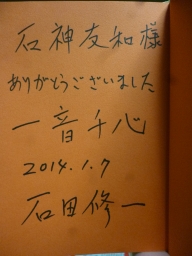 石神友和様
ありがとうございました
一音千心
2014.1.7
石田修一